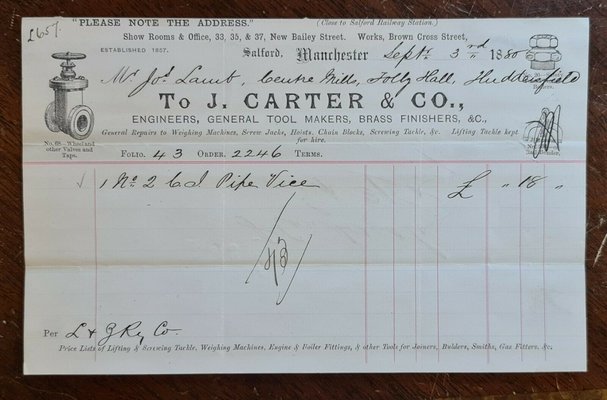 "PLEASE NOTE THE ADDRESS." (Close to Salford Railway Station.)
£657.
Show Rooms & Office, 33, 35, & 37, New Bailey Street. Works, Brown Cross Street,
ESTABLISHED 1857.
Salford, Manchester Septr 3rd 1880
Mr Jos. Lamb, Centre Mills, Folly Hall, Huddersfield
TO J. CARTER & CO.,
ENGINEERS, GENERAL TOOL MAKERS, BRASS FINISHERS, &C.,
General Repairs to Weighing Machines, Screw Jacks, Hoists, Chain Blocks, Screwing Tackle, &c. Lifting Tackle kept
for hire.
No. 68—Wheel and
other Valves and
Taps.
FOLIO. 43 ORDER. 2246 TERMS.
1 No. 2 C I Pipe Vice £ " 18 "
Per L & Y Ry Co.
Price Lists of Lifting & Screwing Tackle, Weighing Machines, Engine & Boiler Fittings, & other Tools for Joiners, Builders, Smiths, Gas Fitters, &c.